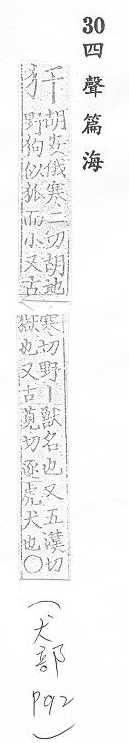 30 四聲篇海
犴 胡安俄寒二切胡地
野狗似狐而小又古
寒切野丨獸名也又五漢切
獄也又古莧切逐虎犬也〇
(犬部 P92)